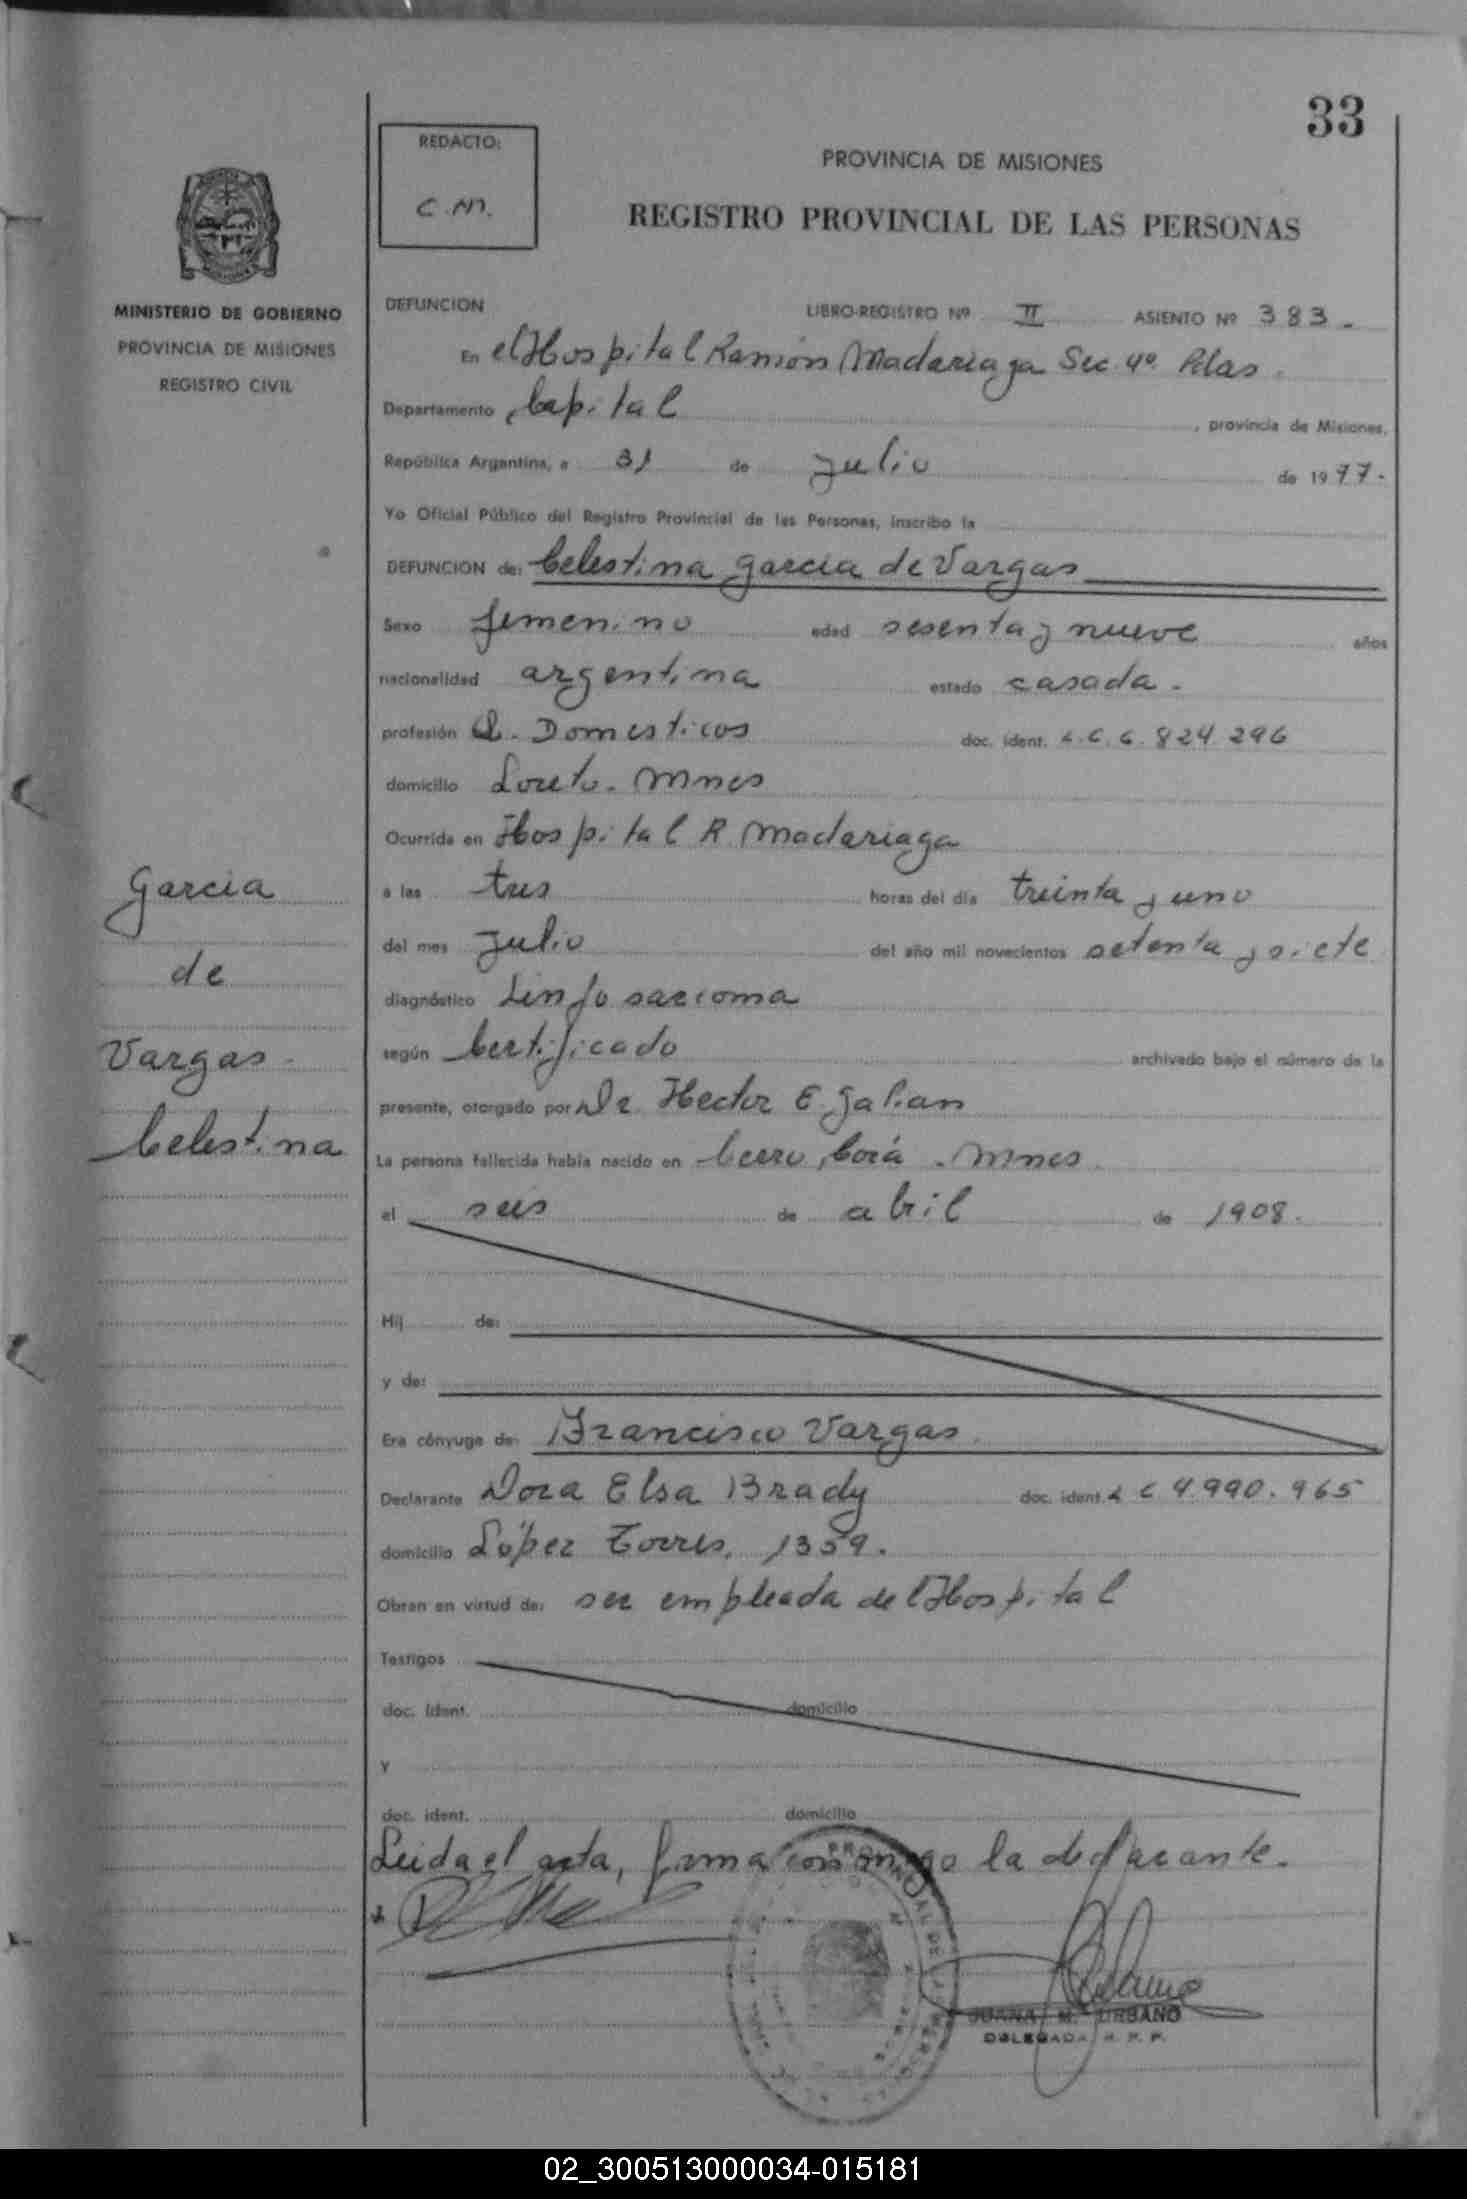 33
REDACTO:
C.M.
PROVINCIA DE MISIONES
REGISTRO PROVINCIAL DE LAS PERSONAS
MINISTERIO DE GOBIERNO
PROVINCIA DE MISIONES
REGISTRO CIVIL
DEFUNCION LIBRO-REGISTRO Nº II ASIENTO Nº 383.
En el Hospital Ramón Madariaga Sec. 4º. Pdas.
Departamento Capital, provincia de Misiones,
República Argentina, a 31 de Julio de 1977.
Yo Oficial Público del Registro Provincial de las Personas, inscribo la
DEFUNCION de: Celestina Garcia de Vargas
Sexo femenino edad sesenta y nueve años
nacionalidad argentina estado casada.
profesión Q. Domesticos doc. ident. L.C. 6.824.296
domicilio Loreto. Mnes
Ocurrida en Hospital R. Madariaga
a las tres horas del día treinta y uno
del mes Julio del año mil novecientos setenta y siete
diagnóstico Linfo sarcoma
según Certificado archivado bajo el número de la
presente, otorgado por Dr. Hector E. Galian
La persona fallecida había nacido en Cerro Corá. Mnes.
el seis de abril de 1908.
Hij de:
y de:
Era cónyuge de: Francisco Vargas.
Declarante Dora Elsa Brady doc. ident. L C 4.990.965
domicilio López Torres. 1359.
Obran en virtud de: ser empleada del Hospital
Testigos
doc. ident. domicilio
Y
doc. ident. domicilio
Leida el acta, firma conmigo la declarante.
JUANA M. URBANO
DELEGADA R. P. P.
Garcia
de
Vargas
Celestina
02_300513000034-015181